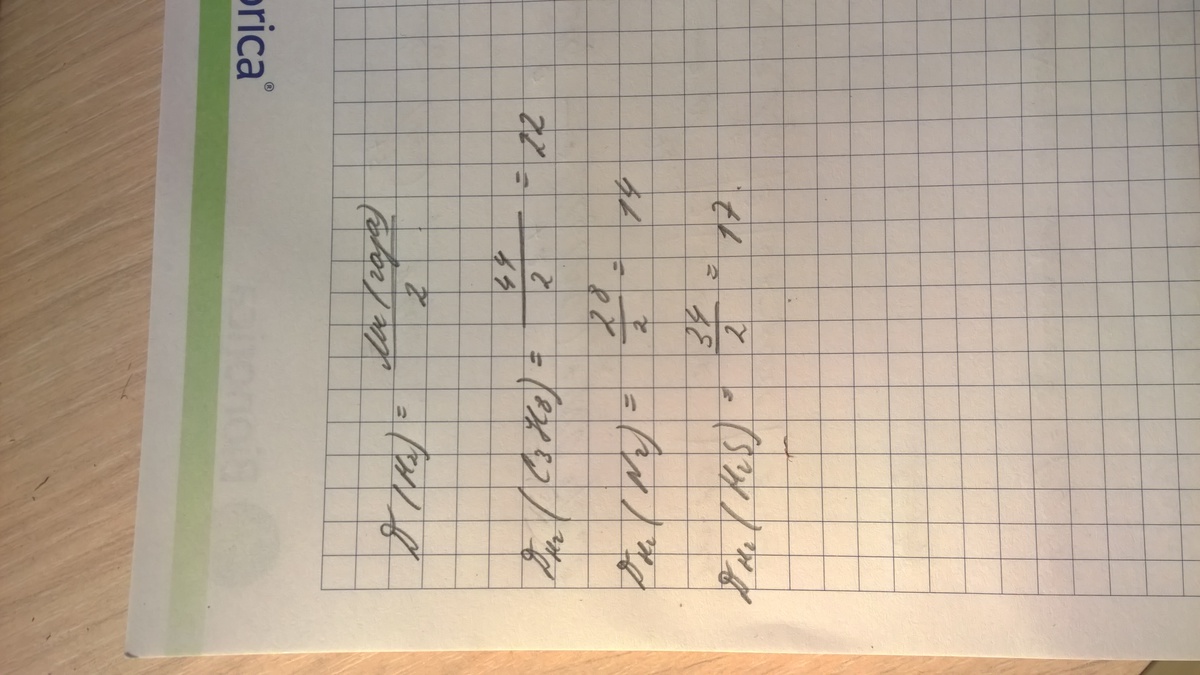 orica®
D(H2) = Mr(газа)/2
DH2(C3H8) = 44/2 = 22
DH2(N2) = 28/2 = 14
DH2(H2S) = 34/2 = 17.